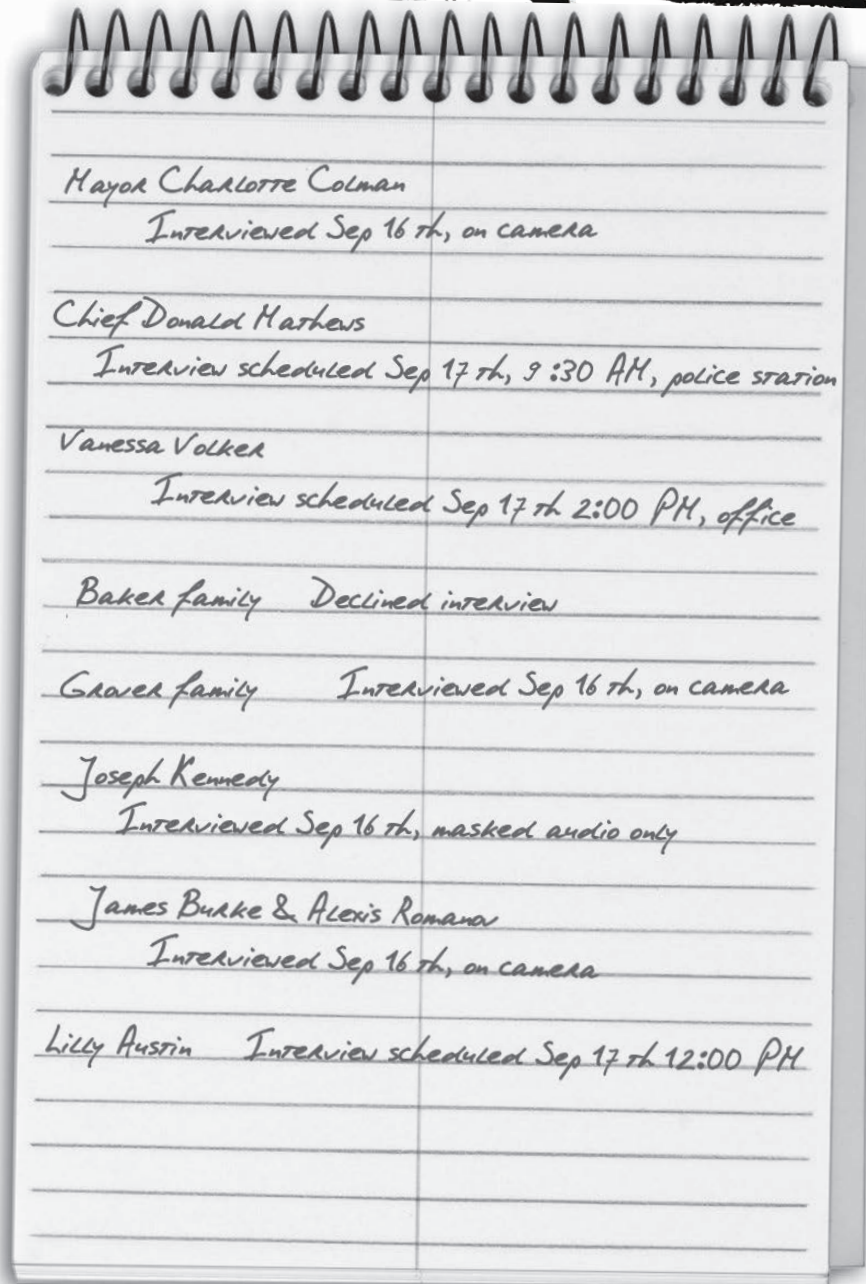 Mayor Charlotte Colman
Interviewed Sep 16 th, on camera
Chief Donald Mathews
Interview scheduled Sep 17 th, 9:30 AM, police station
Vanessa Volker
Interview scheduled Sep 17 th 2:00 PM, office
Baker family Declined interview
Grover family Interviewed Sep 16 th, on camera
Joseph Kennedy
Interviewed Sep 16 th, masked audio only
James Burke & Alexis Romanov
Interviewed Sep 16 th, on camera
Lilly Austin Interview scheduled Sep 17 th 12:00 PM